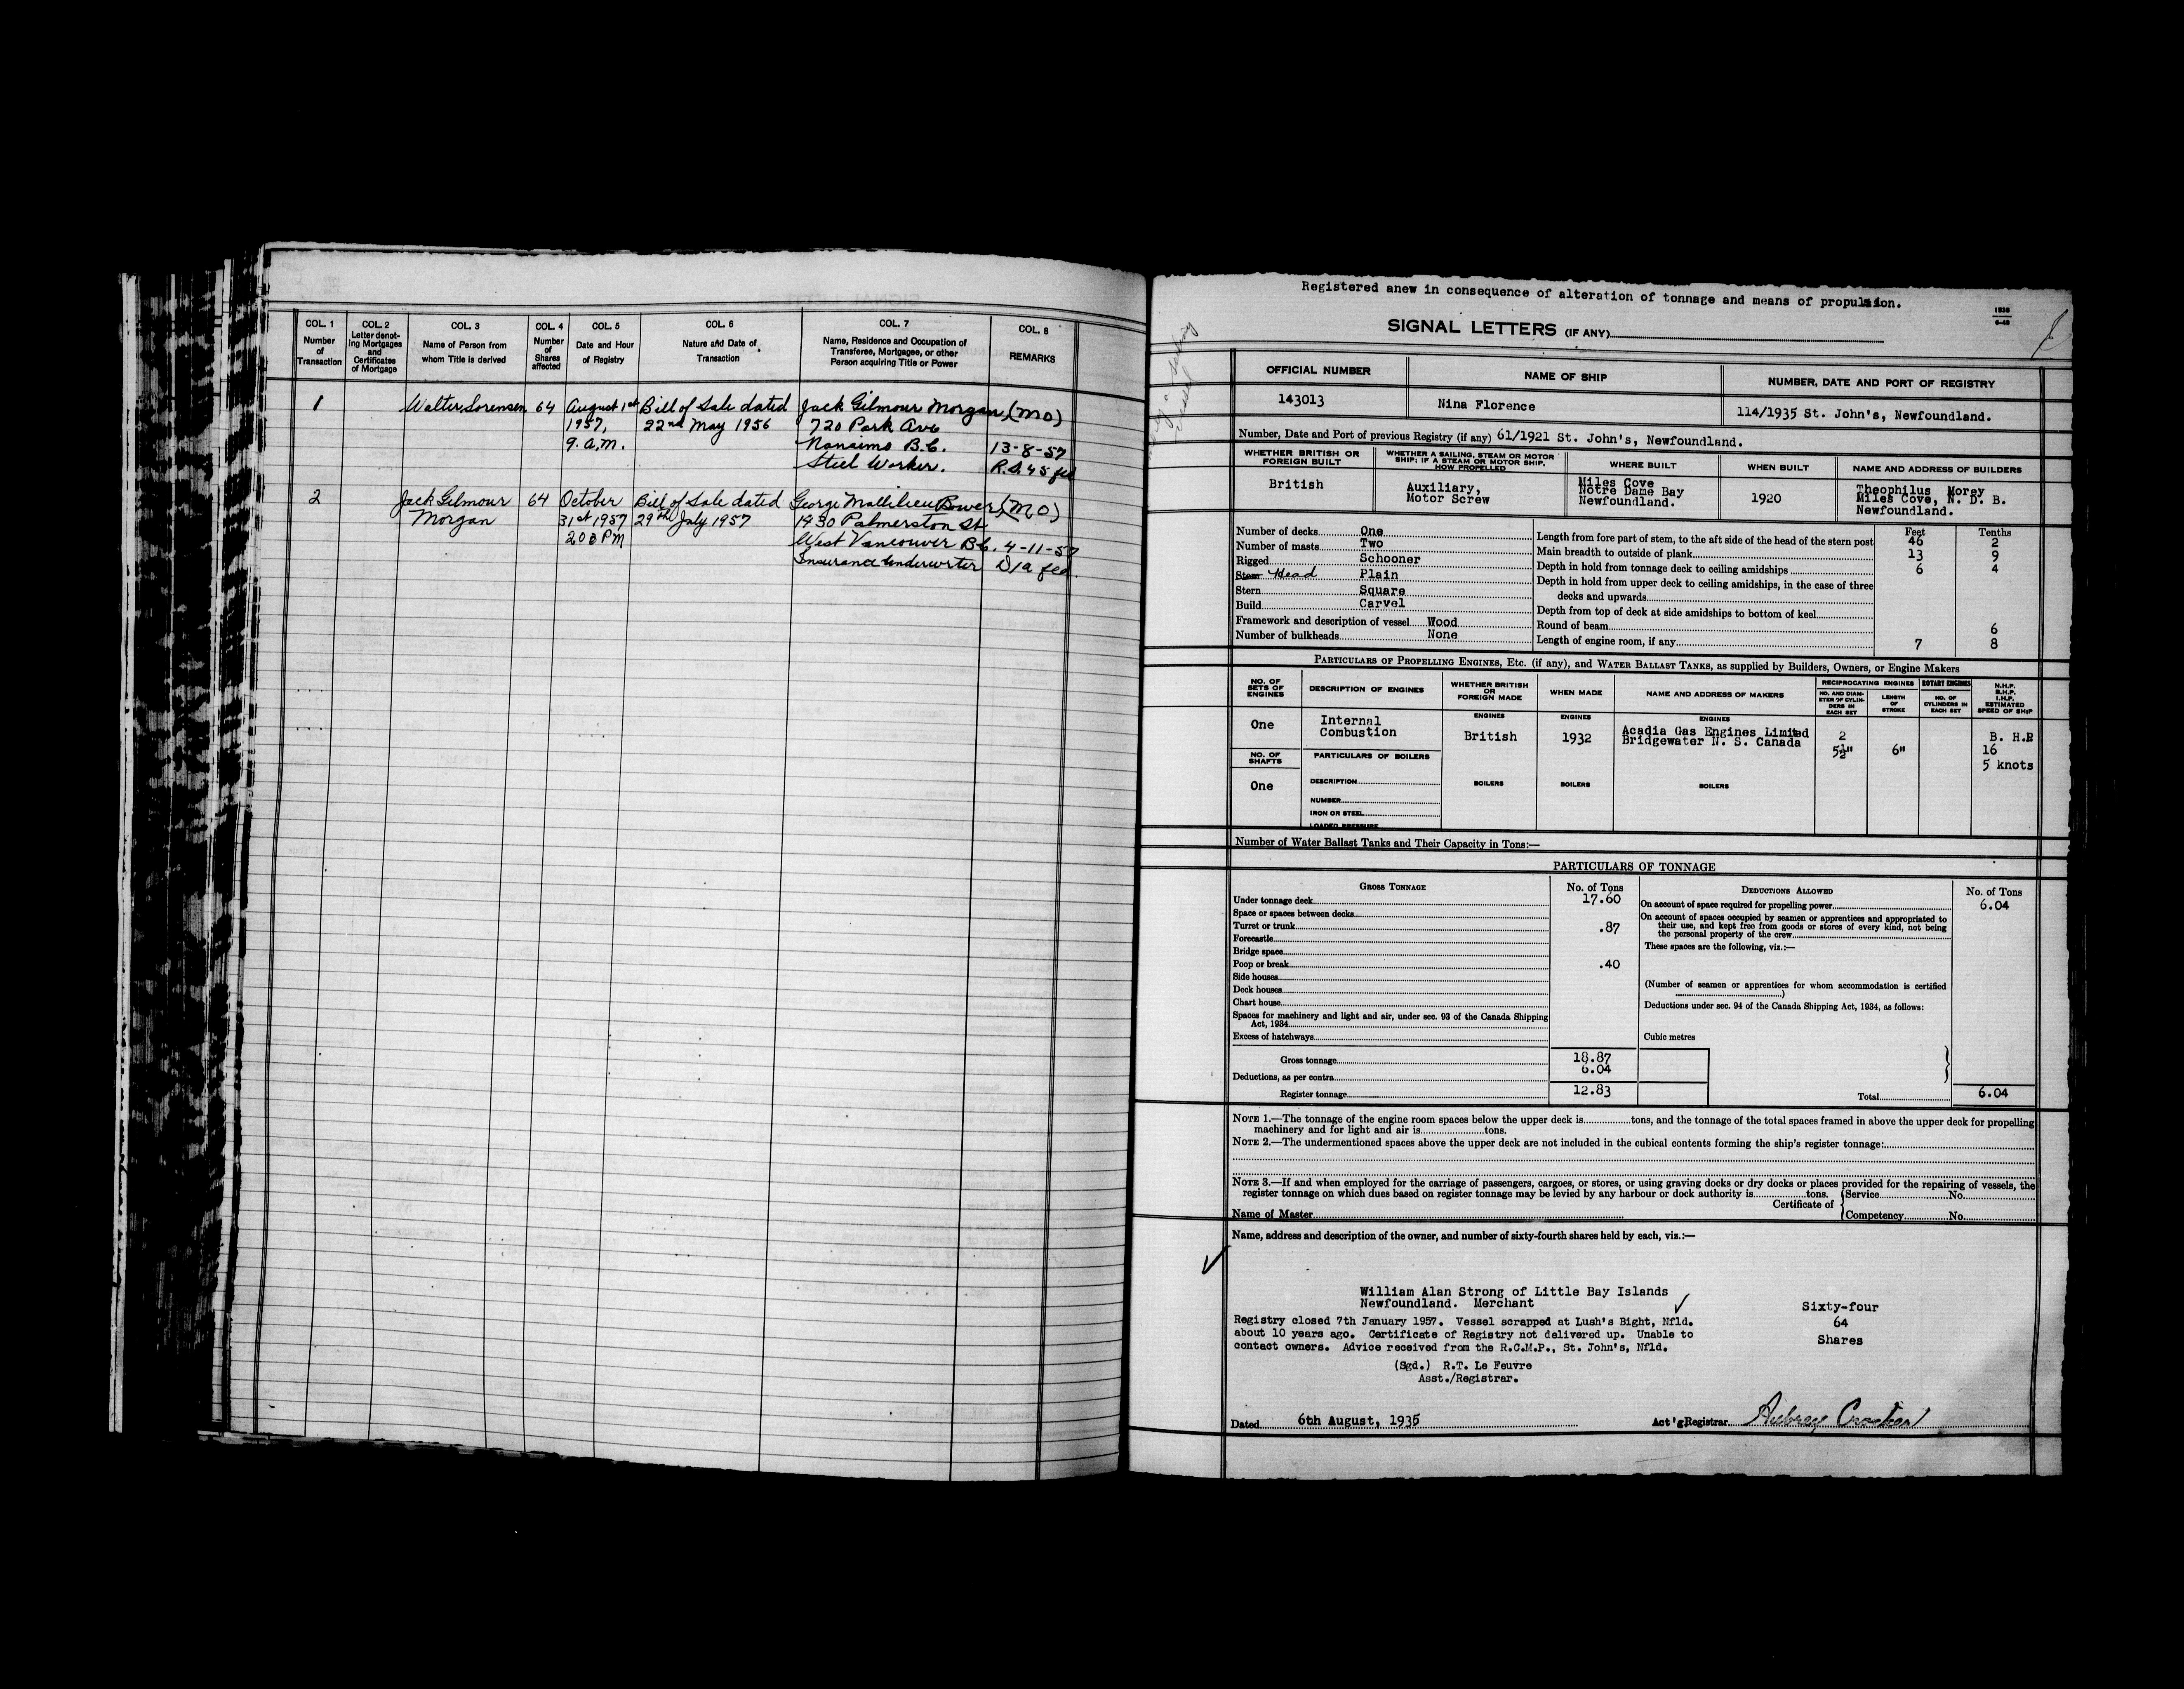 COL. 1
Number
of
Transaction
COL. 2
Letter denot-
ing Mortgages
and
Certificates
of Mortgage
COL. 3
Name of Person from
whom Title is derived
COL. 4
Number
of
Shares
affected
COL. 5
Date and Hour
of Registry
COL. 6
Nature and Date of
Transaction
COL. 7
Name, Residence and Occupation of
Transferee, Mortgagee, or other
Person acquiring Title or Power
COL. 8
REMARKS
1 Walter Sorensen 64 August 1st Bill of Sale dated Jack Gilmour Morgan, (MO)
1957, 22nd May 1956 720 Park Ave
9. a.m. Nanaimo B.C. 13-8-57
Steel Worker.
2 Jack Gilmour 64 October Bill of Sale dated George Mallilieu Bower, (MO)
Morgan 31st 1957 29th July 1957 1930 Palmerston St
PM West Vancouver B.C. 4-11-57
Insurance Underwriter
Registered anew in consequence of alteration of tonnage and means of propulsion.
SIGNAL LETTERS (IF ANY)
OFFICIAL NUMBER NAME OF SHIP NUMBER, DATE AND PORT OF REGISTRY
143013 Nina Florence 114/1935 St. John's, Newfoundland.
Number, Date and Port of previous Registry (if any) 61/1921 St. John's, Newfoundland.
WHETHER BRITISH OR
FOREIGN BUILT
WHETHER A SAILING, STEAM OR MOTOR
SHIP; IF A STEAM OR MOTOR SHIP,
HOW PROPELLED
WHERE BUILT
WHEN BUILT
NAME AND ADDRESS OF BUILDERS
British
Auxiliary,
Motor Screw
Miles Cove
Notre Dame Bay
Newfoundland.
1920
Theophilus Morey
Miles Cove, N. D. B.
Newfoundland.
Number of decks One
Number of masts Two
Rigged Schooner
Stem Head Plain
Stern Square
Build Carvel
Framework and description of vessel Wood
Number of bulkheads None
Feet Tenths
Length from fore part of stem, to the aft side of the head of the stern post 46 2
Main breadth to outside of plank 13 9
Depth in hold from tonnage deck to ceiling amidships 6 4
Depth in hold from upper deck to ceiling amidships, in the case of three
decks and upwards
Depth from top of deck at side amidships to bottom of keel
Round of beam 6
Length of engine room, if any 7 8
PARTICULARS OF PROPELLING ENGINES, ETC. (if any), and WATER BALLAST TANKS, as supplied by Builders, Owners, or Engine Makers
NO. OF
SETS OF
ENGINES
DESCRIPTION OF ENGINES
WHETHER BRITISH
OR
FOREIGN MADE
WHEN MADE
NAME AND ADDRESS OF MAKERS
RECIPROCATING ENGINES
NO. AND DIAM-
ETER OF CYLIN-
DERS IN
EACH SET
LENGTH
OF
STROKE
ROTARY ENGINES
NO. OF
CYLINDERS IN
EACH SET
N.H.P.
B.H.P.
I.H.P.
ESTIMATED
SPEED OF SHIP
ENGINES ENGINES ENGINES
One
Internal
Combustion
British
1932
Acadia Gas Engines Limited
Bridgewater N. S. Canada
2
5½"
6"
B. H.P
16
5 knots
NO. OF
SHAFTS
PARTICULARS OF BOILERS
One
DESCRIPTION BOILERS BOILERS BOILERS
NUMBER
IRON OR STEEL
LOADED PRESSURE
Number of Water Ballast Tanks and Their Capacity in Tons:—
PARTICULARS OF TONNAGE
GROSS TONNAGE No. of Tons
Under tonnage deck 17.60
Space or spaces between decks
Turret or trunk .87
Forecastle
Bridge space
Poop or break .40
Side houses
Deck houses
Chart house
Spaces for machinery and light and air, under sec. 93 of the Canada Shipping
Act, 1934
Excess of hatchways
Gross tonnage 18.87
Deductions, as per contra 6.04
Register tonnage 12.83
DEDUCTIONS ALLOWED No. of Tons
On account of space required for propelling power 6.04
On account of spaces occupied by seamen or apprentices and appropriated to
their use, and kept free from goods or stores of every kind, not being
the personal property of the crew
These spaces are the following, viz.:—
(Number of seamen or apprentices for whom accommodation is certified
)
Deductions under sec. 94 of the Canada Shipping Act, 1934, as follows:
Cubic metres
Total 6.04
NOTE 1.—The tonnage of the engine room spaces below the upper deck is tons, and the tonnage of the total spaces framed in above the upper deck for propelling
machinery and for light and air is tons.
NOTE 2.—The undermentioned spaces above the upper deck are not included in the cubical contents forming the ship's register tonnage:
NOTE 3.—If and when employed for the carriage of passengers, cargoes, or stores, or using graving docks or dry docks or places provided for the repairing of vessels, the
register tonnage on which dues based on register tonnage may be levied by any harbour or dock authority is tons.
Name of Master Certificate of Service No.
Competency No.
Name, address and description of the owner, and number of sixty-fourth shares held by each, viz.:—
William Alan Strong of Little Bay Islands
Newfoundland. Merchant
Sixty-four
64
Shares
Registry closed 7th January 1957. Vessel scrapped at Lush's Bight, Nfld.
about 10 years ago. Certificate of Registry not delivered up. Unable to
contact owners. Advice received from the R.C.M.P., St. John's, Nfld.
(Sgd.) R.T. Le Feuvre
Asst./Registrar.
Dated 6th August, 1935 Act'g Registrar Aubrey Crocker